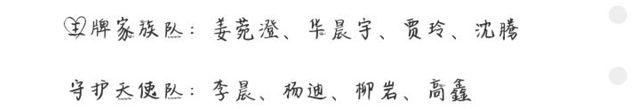 王牌家族队：姜菀澄、华晨宇、贾玲、沈腾
守护天使队：李晨、杨迪、柳岩、高鑫